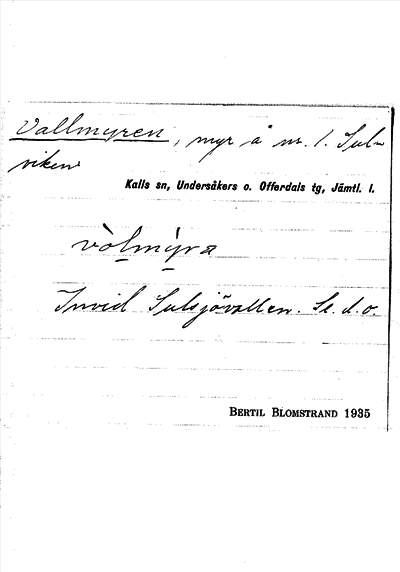 Vallmyren, myr å nr. 1. Sul-
viken
Kalls sn, Undersåkers o. Offerdals tg, Jämtl. l.
vòlmýra
Invid Sulsjövallen. Se. d. o.
BERTIL BLOMSTRAND 1935